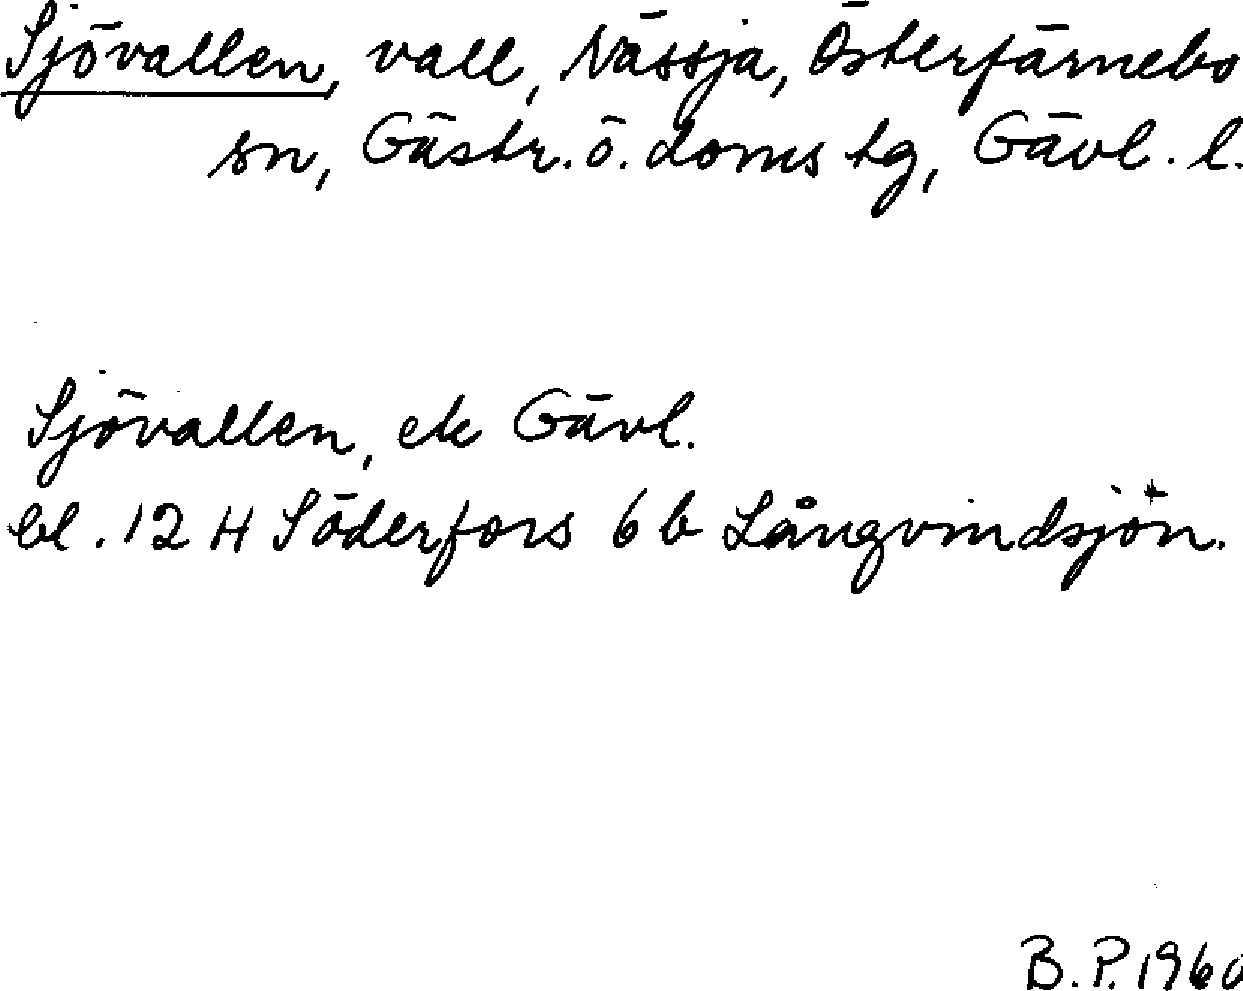 Sjövallen, vall, Nässja, Österfärnebo
sn, Gästr. ö. doms tg, Gävl. l.
Sjövallen, ek Gävl.
bl. 12 H Söderfors 6 b Långvindsjön.
B. P. 1960